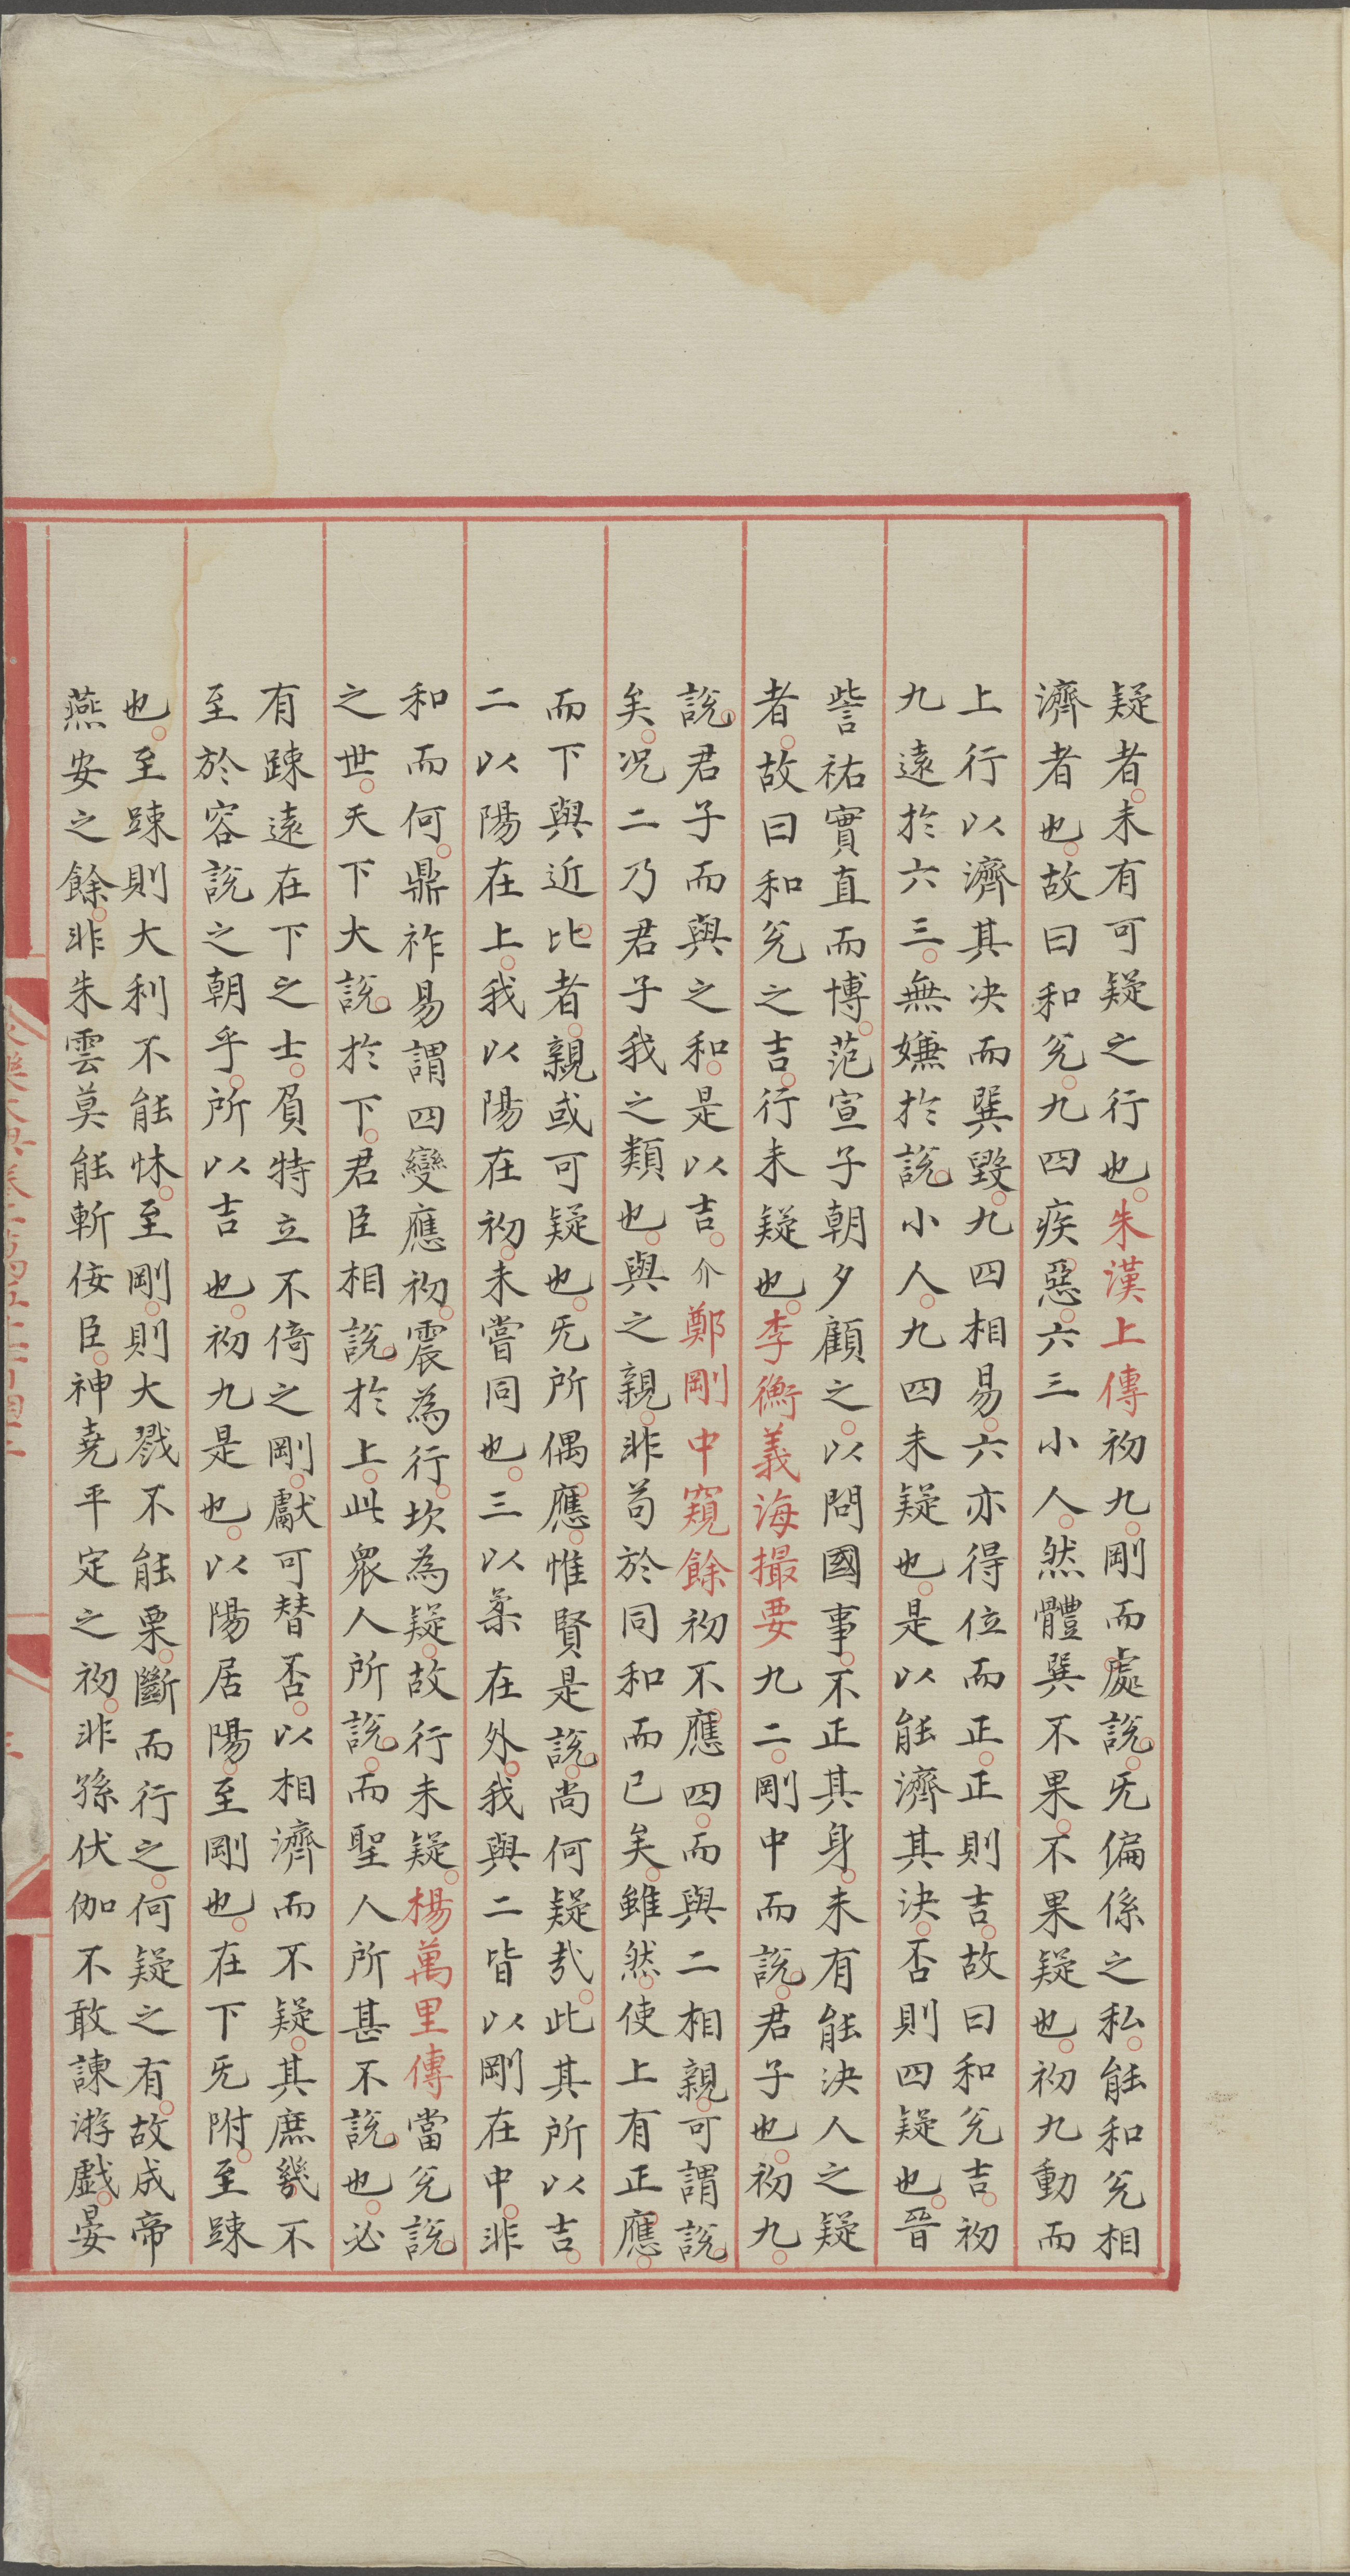 疑者未有可疑之行也朱漢上傳初九剛而處說旡偏係之私能和兊相
濟者也故曰和兊九四疾惡六三小人然體巽不果不果疑也初九動而
上行以濟其决而巽毀九四相易六亦得位而正正則吉故曰和兊吉初
九遠於六三無嫌於說小人九四未疑也是以能濟其決否則四疑也晉
訾祐實直而博范宣子朝夕顧之以問國事不正其身未有能決人之疑
者故曰和兊之吉行未疑也李衡義海撮要九二剛中而說君子也初九
說君子而與之和是以吉介鄭剛中窺餘初不應四而與二相親可謂說
矣况二乃君子我之類也與之親非苟於同和而已矣雖然使上有正應
而下與近比者親或可疑也旡所偶應惟賢是說尚何疑㢤此其所以吉
二以陽在上我以陽在初未嘗同也三以柔在外我與二皆以剛在中非
和而何鼎祚易謂四變應初震為行坎為疑故行未疑楊萬里傳當兊說
之世天下大說於下君臣相說於上此衆人所說而聖人所甚不說也必
有踈遠在下之士負特立不倚之剛獻可替否以相濟而不疑其庶幾不
至於容說之朝乎所以吉也初九是也以陽居陽至剛也在下旡附至踈
也至踈則大利不能怵至剛則大戮不能栗斷而行之何疑之有故成帝
燕安之餘非朱雲莫能斬佞臣神堯平定之初非孫伏伽不敢諫游戱晏